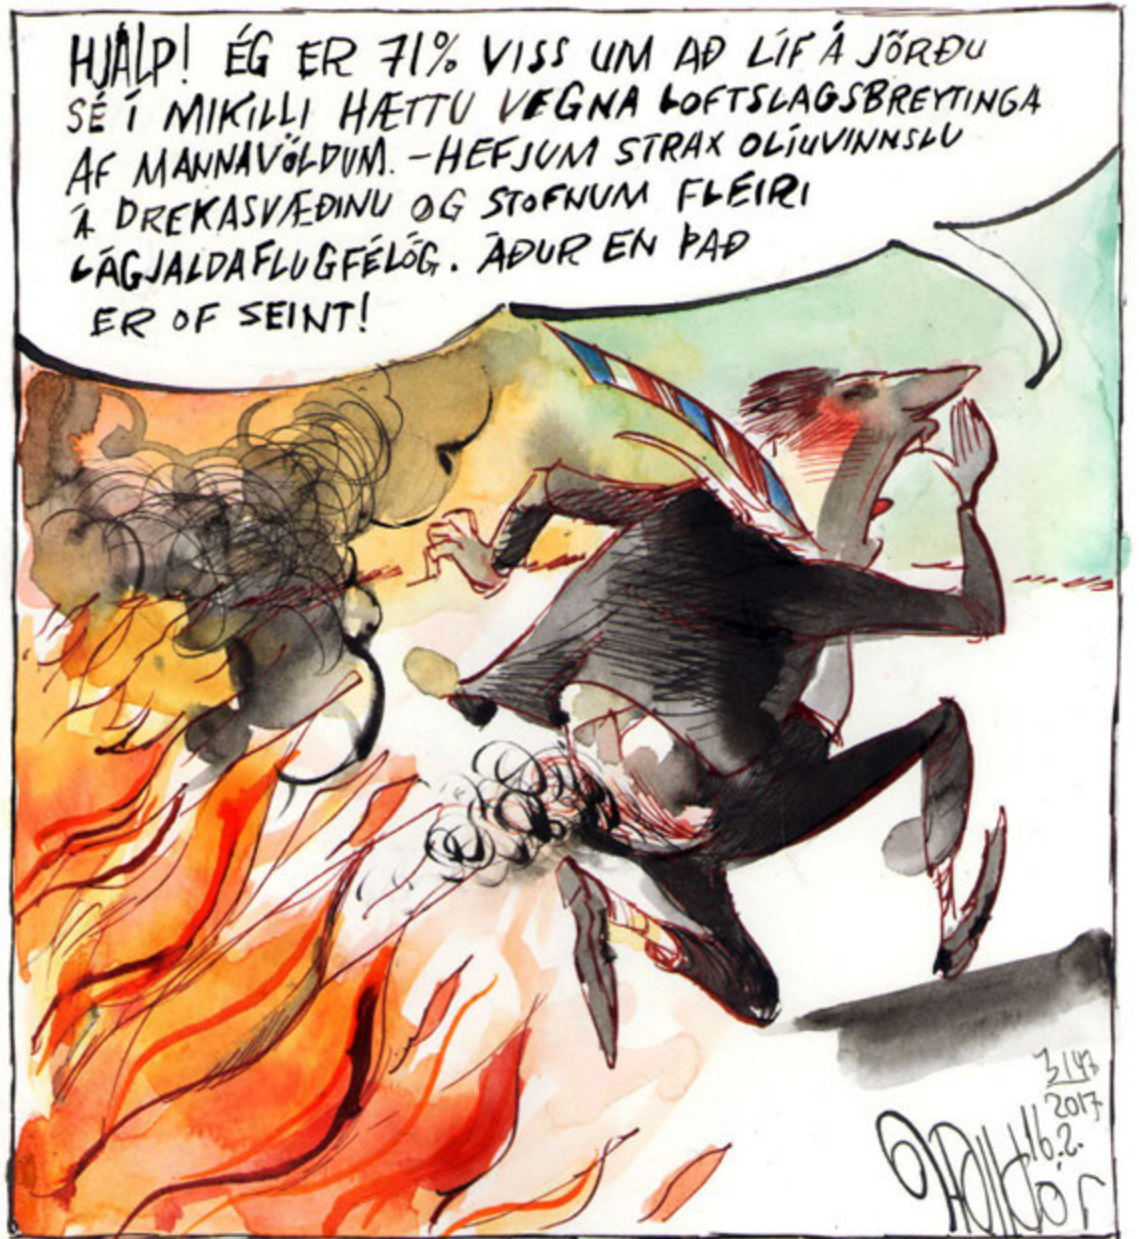 HJÁLP! ÉG ER 71% VISS UM AÐ LÍF Á JÖRÐU
SÉ Í MIKILLI HÆTTU VEGNA LOFTSLAGSBREYTINGA
AF MANNAVÖLDUM. – HEFJUM STRAX OLÍUVINNSLU
Á DREKASVÆÐINU OG STOFNUM FLEIRI
LÁGJALDAFLUGFÉLÖG. ÁÐUR EN ÞAÐ
ER OF SEINT!
2017
16.2.
Halldór